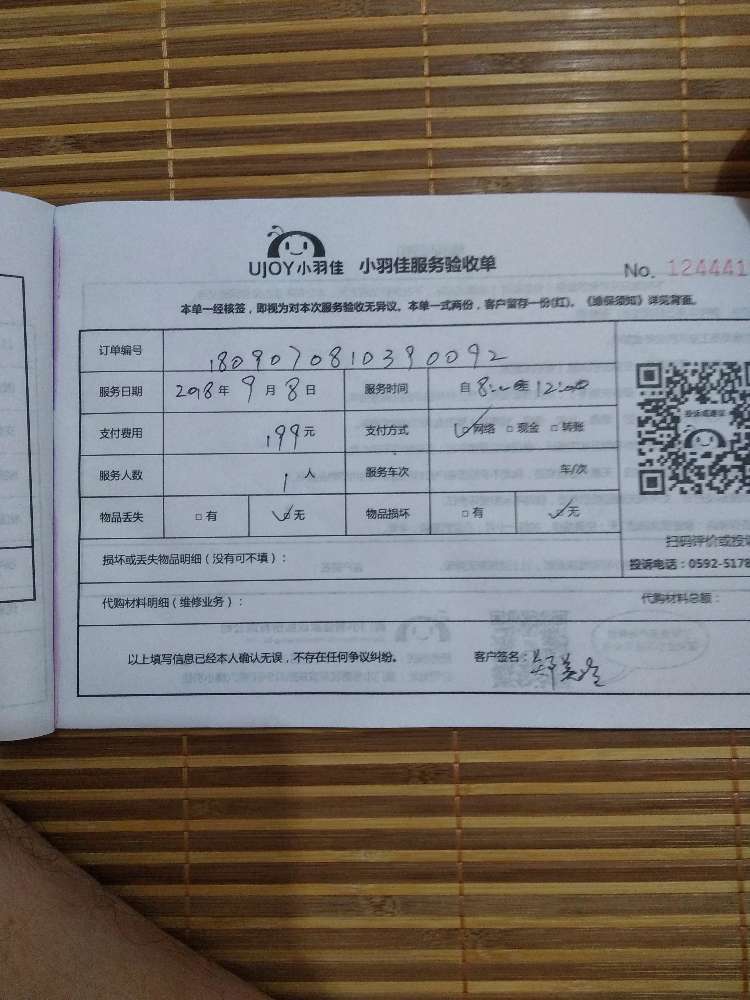 UJOY小羽佳 小羽佳服务验收单
No. 124441
本单一经核签，即视为对本次服务验收无异议。本单一式两份，客户留存一份(红)。《维保须知》详见背面。
订单编号 1809070810390092
服务日期 2018年9月8日 服务时间 自8:00至12:00
支付费用 199元 支付方式 ☑网络 □现金 □转账
服务人数 1人 服务车次 车/次
物品丢失 □有 ☑无 物品损坏 □有 ☑无
投诉或建议
扫码评价或投诉
投诉电话：0592-5178
损坏或丢失物品明细（没有可不填）：
代购材料明细（维修业务）： 代购材料总额：
以上填写信息已经本人确认无误，不存在任何争议纠纷。 客户签名：